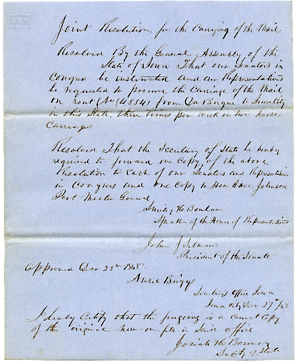 Joint Resolution for the Carrying of the Mail
Resolved By the General Assembly of the
State of Iowa That our Senators in
Congress be instructed and our Representatives
be requested to procure the Carriage of the Mail
on rout (No 4554) from Du Buque to
in this State three times per week in two horse
Carriages
Resolved That the Secretary of State be hereby
required to forward one Copy of the above
Resolution to each of our Senators and Representatives
in Congress and one Copy to Hon Cave Johnson
Post Master General
Smiley H Bonham
Speaker of the House of Representatives
John J Selman
President of the Senate
Approved Dec 25th 1848
Ansel Briggs
Secretarys Office Iowa
Iowa City Dec 27th /48
I hereby Certify that the foregoing is a Correct Copy
of the original now on file in said office
Josiah H Bonney
Secty of State